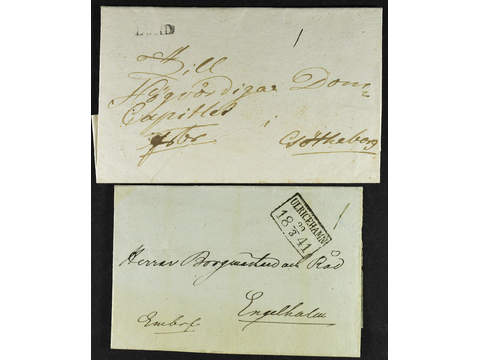 LUND
Till
Högvördiga Dom=
Capitlet
i
Götheborg
ULRICEHAMN
22
18 41
3
Herrar Borgmästed och Råd
Engelholm